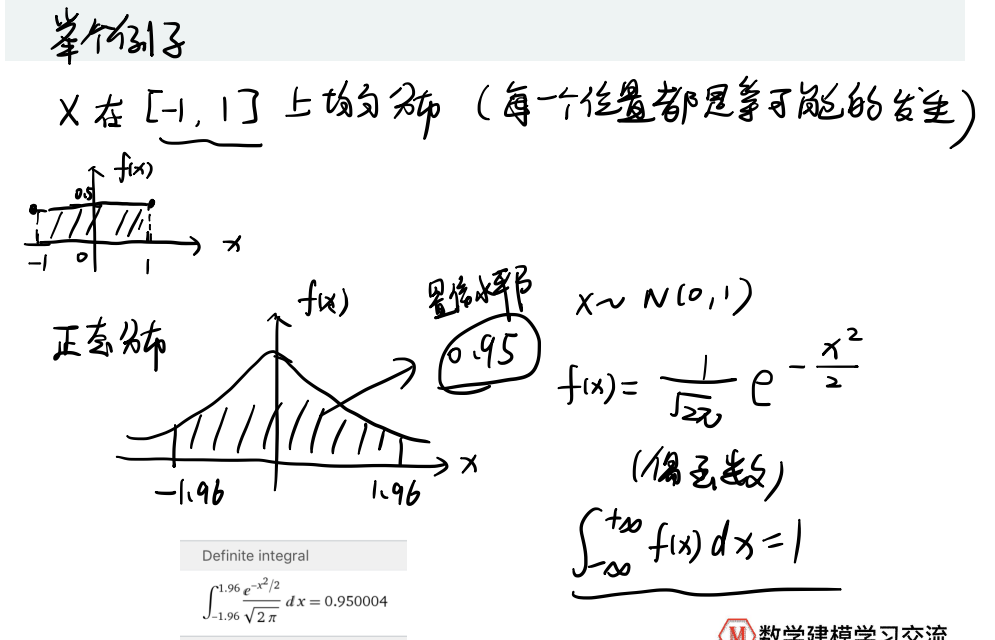 举个例子
X 在 [-1, 1] 上均匀分布 (每一个位置都是等可能的发生)
f(x)
0.5
-1 0 1 x
正态分布
f(x)
置信水平β
0.95
-1.96 1.96 x
x ~ N(0,1)
f(x) = \frac{1}{\sqrt{2π}} e^{-\frac{x^2}{2}}
(偶函数)
\int_{-∞}^{+∞} f(x) dx = 1
Definite integral
\int_{-1.96}^{1.96} \frac{e^{-x^2/2}}{\sqrt{2 π}} dx = 0.950004
M 数学建模学习交流